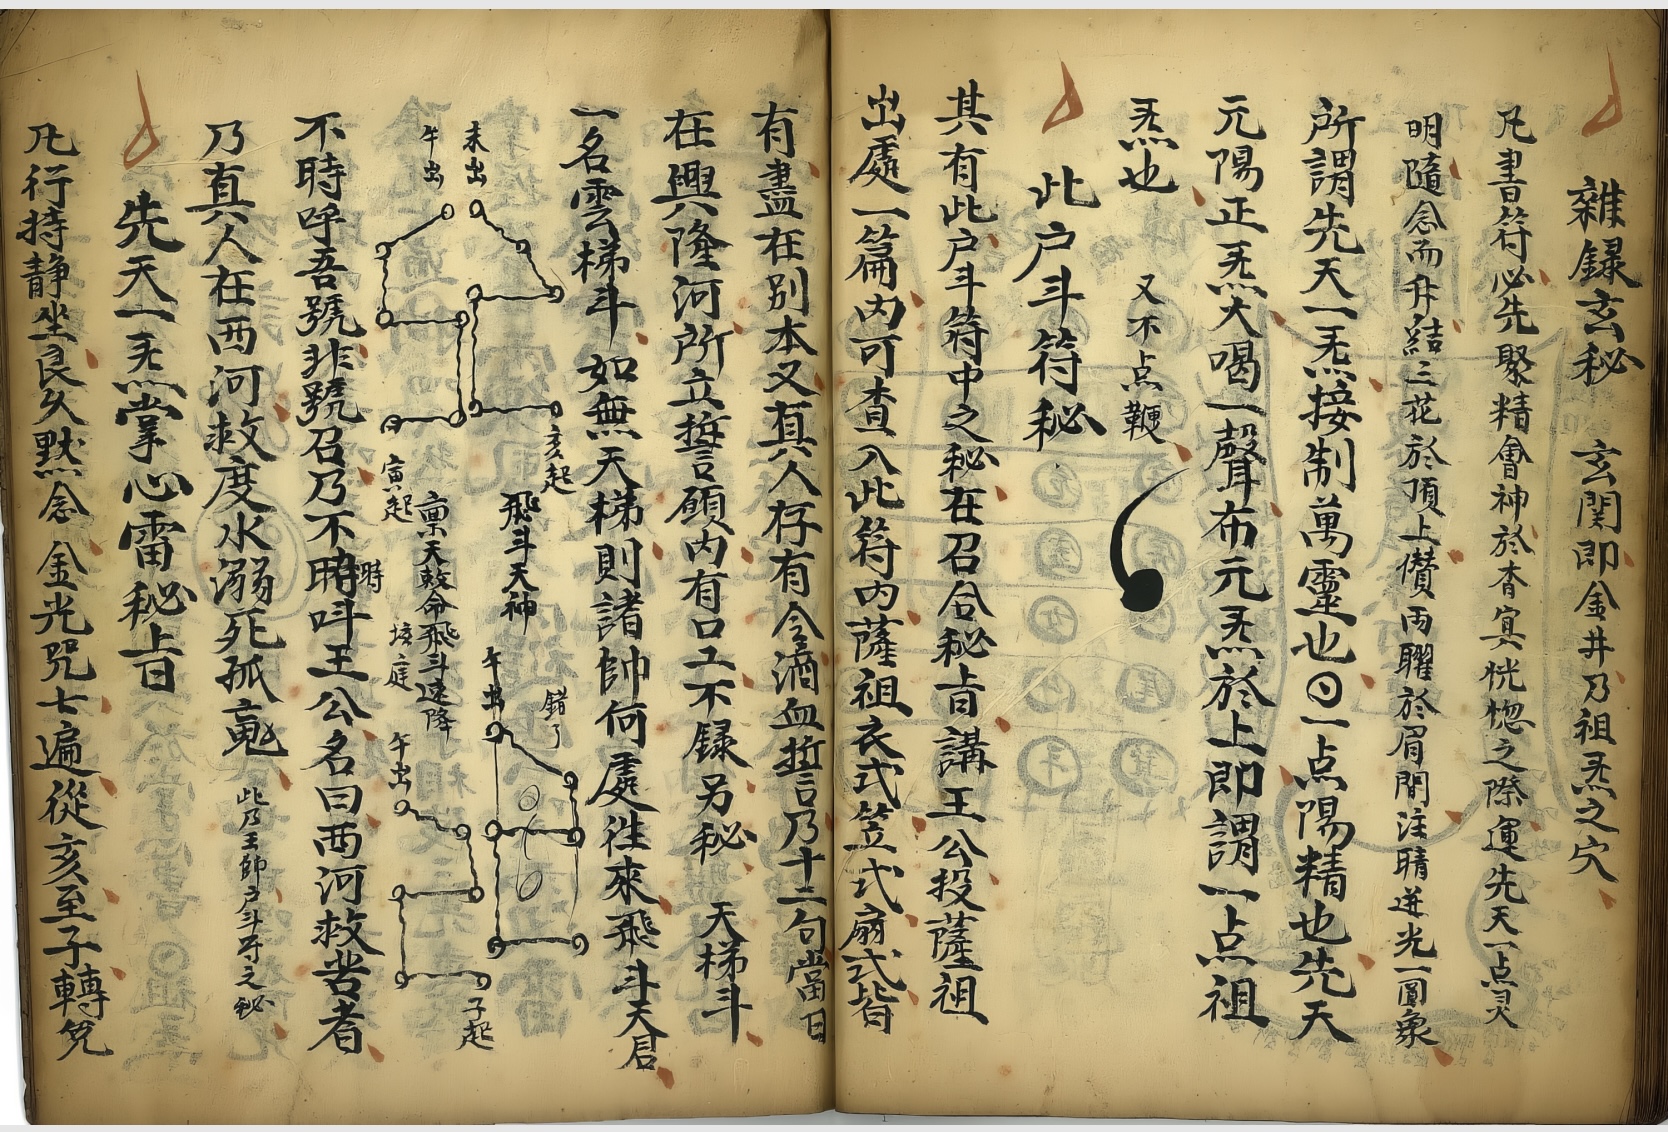 雜録玄秘 玄関即金井乃祖炁之穴
凡書符必先聚精會神於杳冥恍惚之際運先天一点灵
明隨念而升結三花於頂上儹両曜於眉間注睛迸光一圓象
所謂先天一炁接制萬靈也⊙一点陽精也先天
元陽正炁大喝一聲布元炁於上即謂一点祖
炁也 又不点鞭
此户斗符秘
其有此户斗符中之秘在召合秘旨講王公投薩祖
出處一篇内可查入此符内薩祖衣式笠式扇式皆
有盡在别本又真人存有令滴血誓言乃十二句當日
在興隆河所立誓言願内有口工不録另秘 天梯斗
一名雲梯斗 如無天梯則諸帥何處徃來飛斗天君
未出
午出
亥起
寅起
飛斗天神
稟天敕命飛斗速降
垓庭
午出
錯了
午出
子起
不時呼吾號非號召乃不時呌王公名曰西河救苦者
時
乃真人在西河救度水溺死孤䰟 此乃王帥户斗符之秘
先天一炁掌心雷秘旨
凡行持静坐良久黙念 金光咒七遍從亥至子轉兑